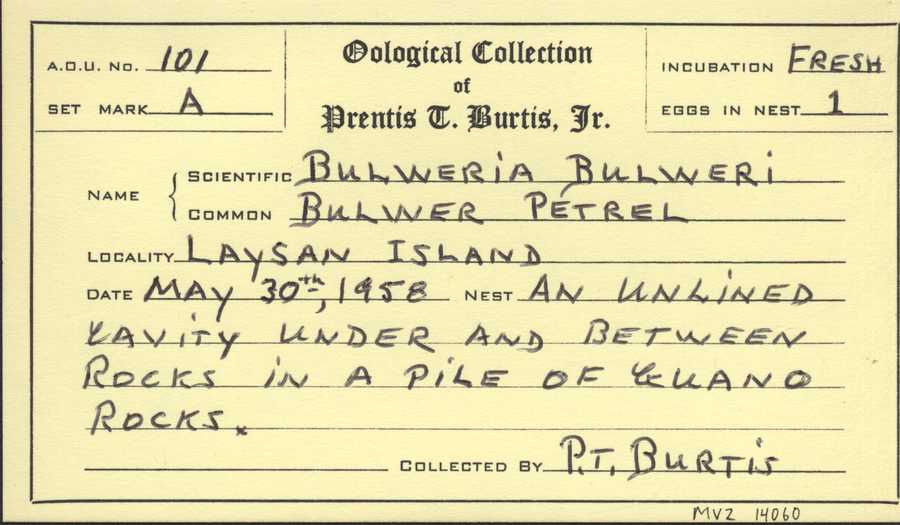 A.O.U. No. 101
SET MARK A
Oological Collection
of
Prentis T. Burtis, Jr.
INCUBATION FRESH
EGGS IN NEST 1
NAME
SCIENTIFIC BULWERIA BULWERI
COMMON BULWER PETREL
LOCALITY LAYSAN ISLAND
DATE MAY 30th, 1958 NEST AN UNLINED
CAVITY UNDER AND BETWEEN
ROCKS IN A PILE OF GUANO
ROCKS.
COLLECTED BY P.T. BURTIS
MVZ 14060